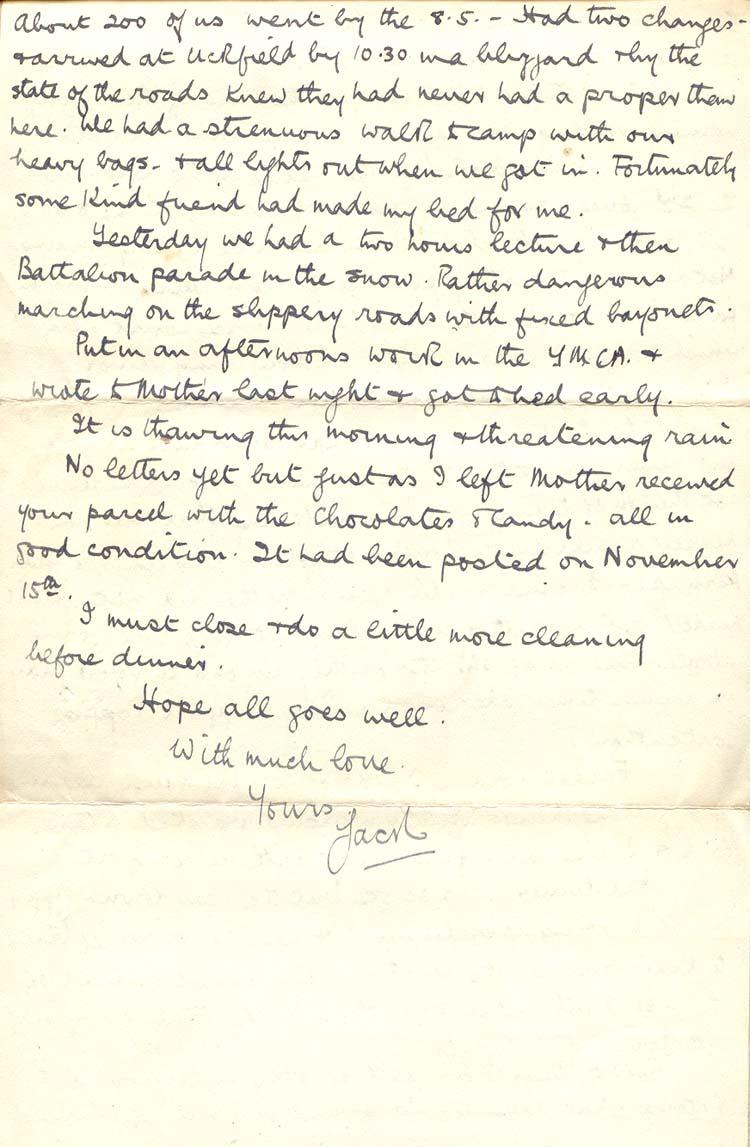 About 200 of us went by the 8.5. – Had two changes –
& arrived at Uckfield by 10.30 in a blizzard & by the
state of the roads knew they had never had a proper thaw
here. We had a strenuous walk to camp with our
heavy bags – & all lights out when we got in. Fortunately
some kind friend had made my bed for me.
Yesterday we had a two hours lecture & then
Battalion parade in the snow. Rather dangerous
marching on the slippery roads with fixed bayonets.
Put in an afternoons work in the YMCA. &
wrote to Mother last night & got to bed early.
It is thawing this morning & threatening rain
No letters yet but just as I left Mother received
your parcel with the Chocolates & Candy – all in
good condition. It had been posted on November
15th.
I must close & do a little more cleaning
before dinner.
Hope all goes well.
With much love.
Yours,
Jack